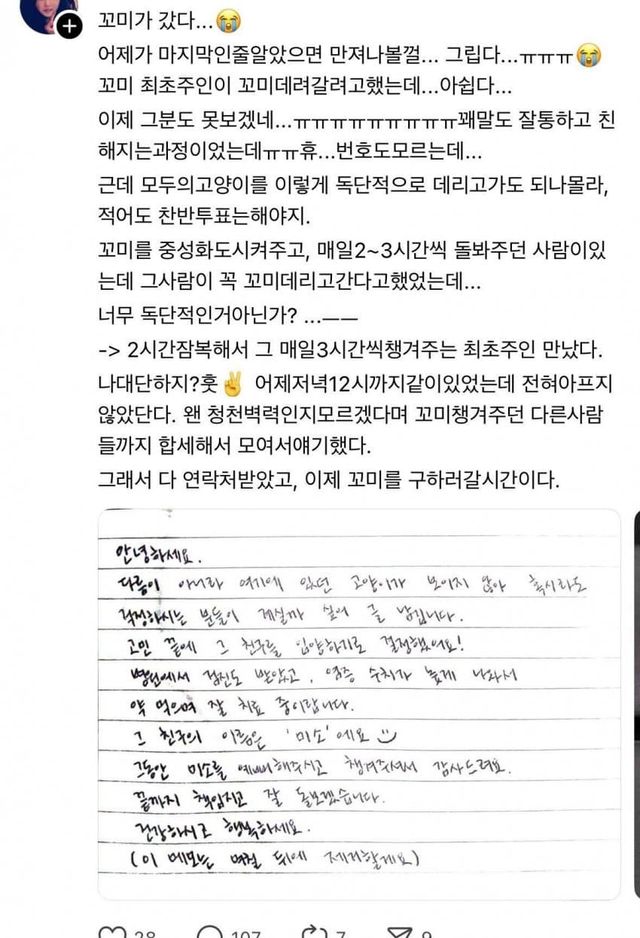 꼬미가 갔다...😭
어제가 마지막인줄알았으면 만져나볼껄... 그립다...ㅠㅠㅠ😭
꼬미 최초주인이 꼬미데려갈려고했는데...아쉽다...
이제 그분도 못보겠네...ㅠㅠㅠㅠㅠㅠㅠㅠㅠ꽤말도 잘통하고 친
해지는과정이었는데ㅠㅠ휴...번호도모르는데...
근데 모두의고양이를 이렇게 독단적으로 데리고가도 되나몰라,
적어도 찬반투표는해야지.
꼬미를 중성화도시켜주고, 매일2~3시간씩 돌봐주던 사람이있
는데 그사람이 꼭 꼬미데리고간다고했었는데...
너무 독단적인거아닌가? ...ㅡㅡ
-> 2시간잠복해서 그 매일3시간씩챙겨주는 최초주인 만났다.
나대단하지?훗✌️ 어제저녁12시까지같이있었는데 전혀아프지
않았단다. 왠 청천벽력인지모르겠다며 꼬미챙겨주던 다른사람
들까지 합세해서 모여서얘기했다.
그래서 다 연락처받았고, 이제 꼬미를 구하러갈시간이다.
안녕하세요.
다름이 아니라 여기에 있던 고양이가 보이지 않아 혹시라도
걱정하시는 분들이 계실까 싶어 글 남깁니다.
고민 끝에 그 친구를 입양하기로 결정했어요!
병원에서 검진도 받았고, 염증 수치가 높게 나와서
약 먹으며 잘 치료 중이랍니다.
그 친구의 이름은 '미소'에요
그동안 미소를 예뻐해주시고 챙겨주셔서 감사드려요.
끝까지 책임지고 잘 돌보겠습니다.
건강하시고 행복하세요.
(이 메모는 며칠 뒤에 제거할게요)
28 107 7 9